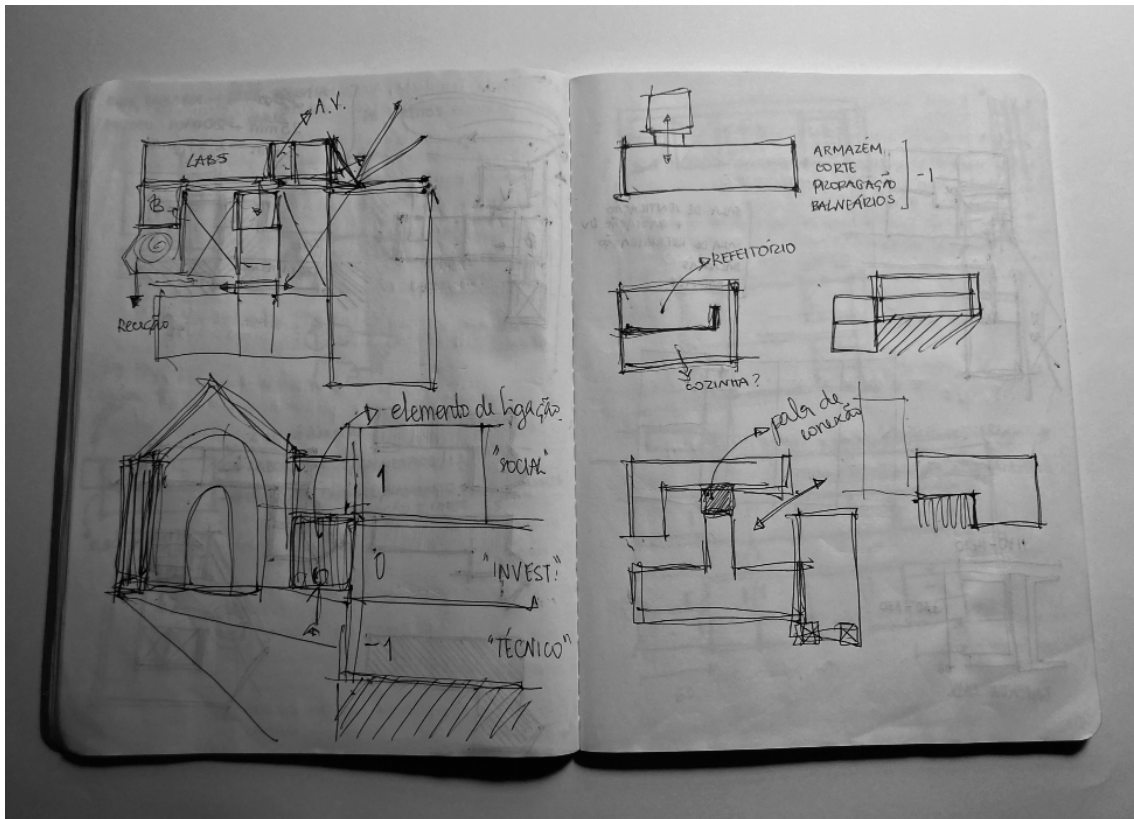 A.V.
LABS
B
Receção
elemento de ligação
1
"SOCIAL"
0
"INVEST."
-1
"TÉCNICO"
ARMAZÉM
CORTE
PROPAGAÇÃO
BALNEÁRIOS
-1
REFEITÓRIO
COZINHA?
pala de
conexão